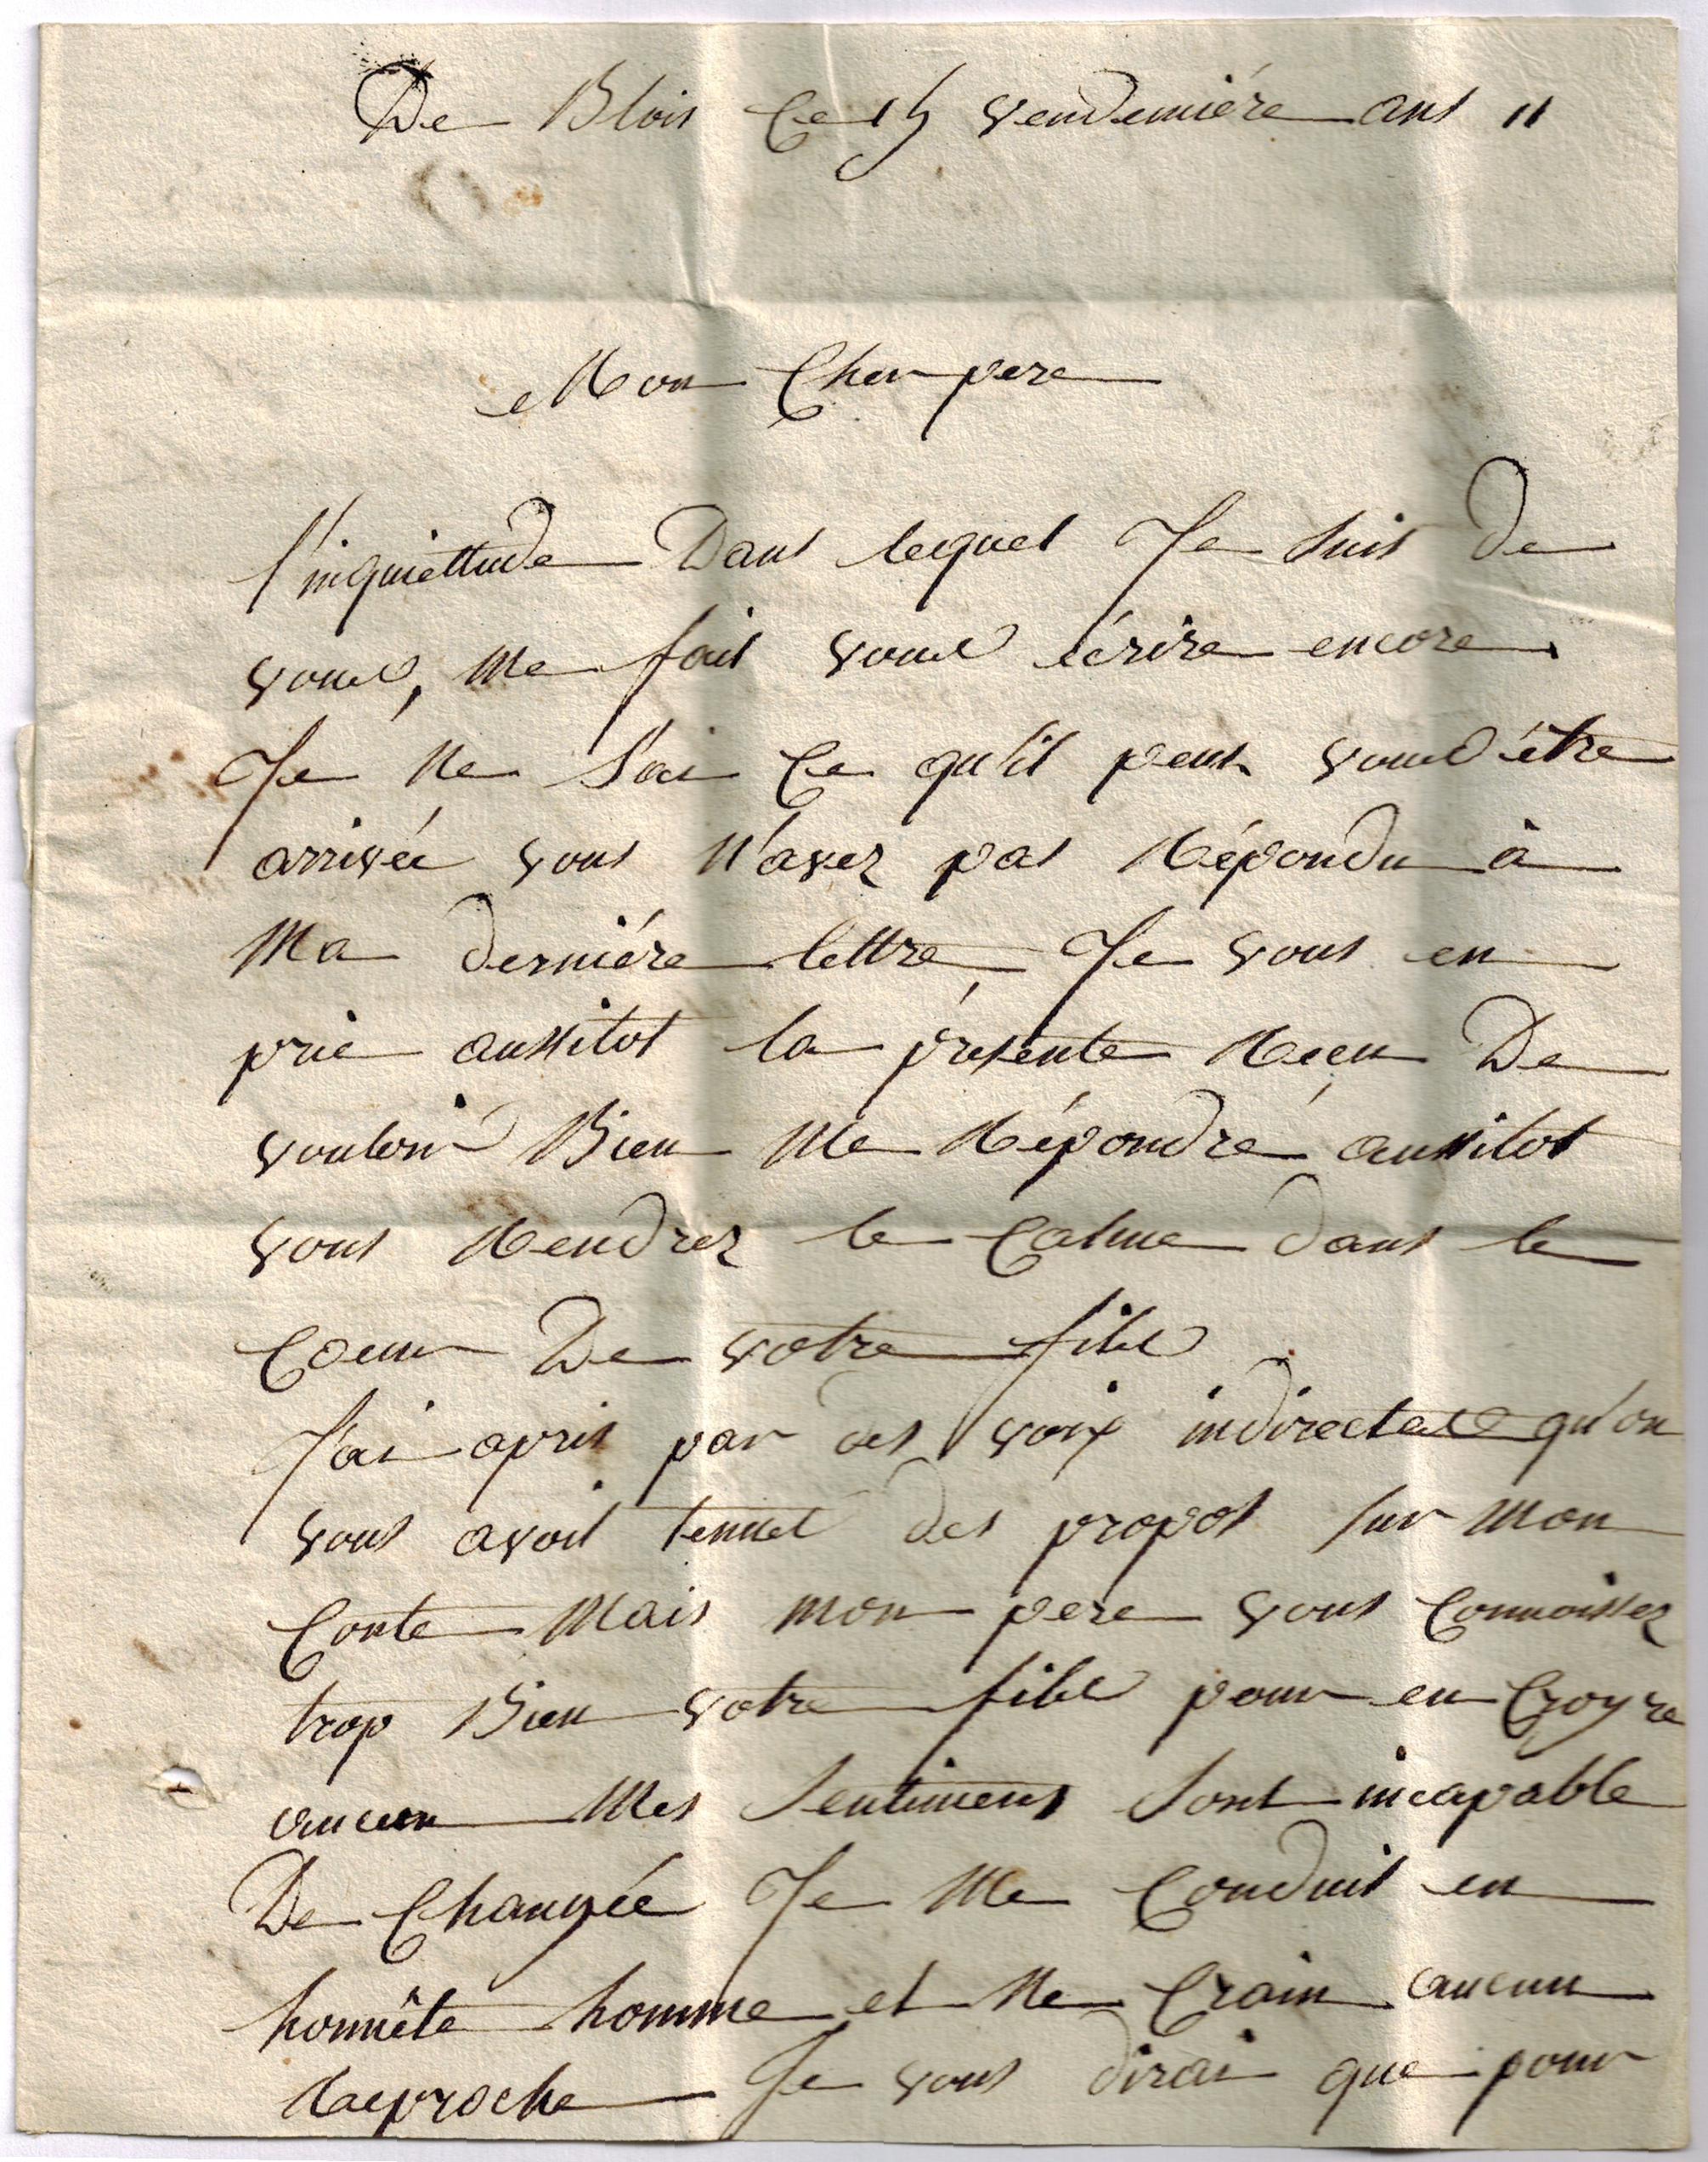 De Blois Ce 15 vendemiére ans 11
Mon Cher pere
l'inquiettude Dans lequel Je suis De
vous, me fait vous écrire encore
Je ne sai Ce qu'il peut vous être
arrivée vous n'avez pas Répondu à
Ma derniére lettre Je vous en
prie aussitot la présente Recu De
vouloir Bien Me Répondre aussitot
vous Rendrez le Calme dans le
Coeur De votre fils
J'ai apris par des voix indirectes qu'on
vous avoit tenues des propos sur Mon
Conte Mais mon pere vous Connoissez
trop Bien votre fils pour en Croyre
aucun Mes sentiments sont incapable
De Changée Je Me Conduit en
honnête homme et Ne Crain aucun
Raeproche Je vous dirai que pour